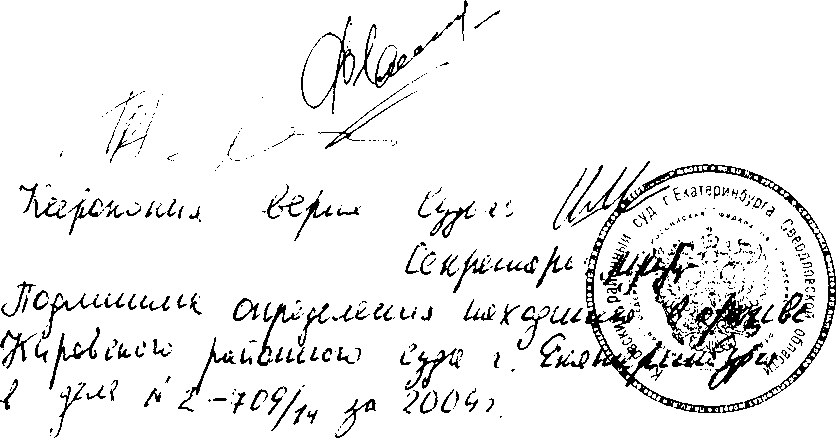 Ксерокопия верна Судья
Секретарь
Подлинник определения находится в архиве
Кировского районного суда г. Екатеринбурга
в деле № 2-709/14 за 2004г.
Кировский районный суд г. Екатеринбурга Свердловской области